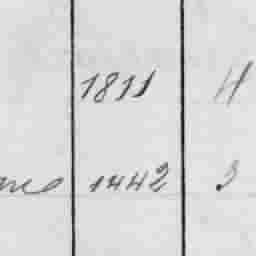 1811 H
1442 3